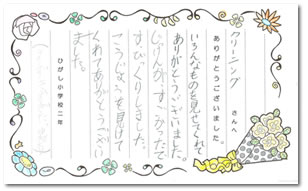 クリーニング　さんへ
ありがとうございました。
いろんなものを見せてくれて
ありがとうございました。
じっけんがすごかったで
すびっくりしました。
こうじょうを見けて
くれてありがとうござい
ました。
ひがし小学校二年